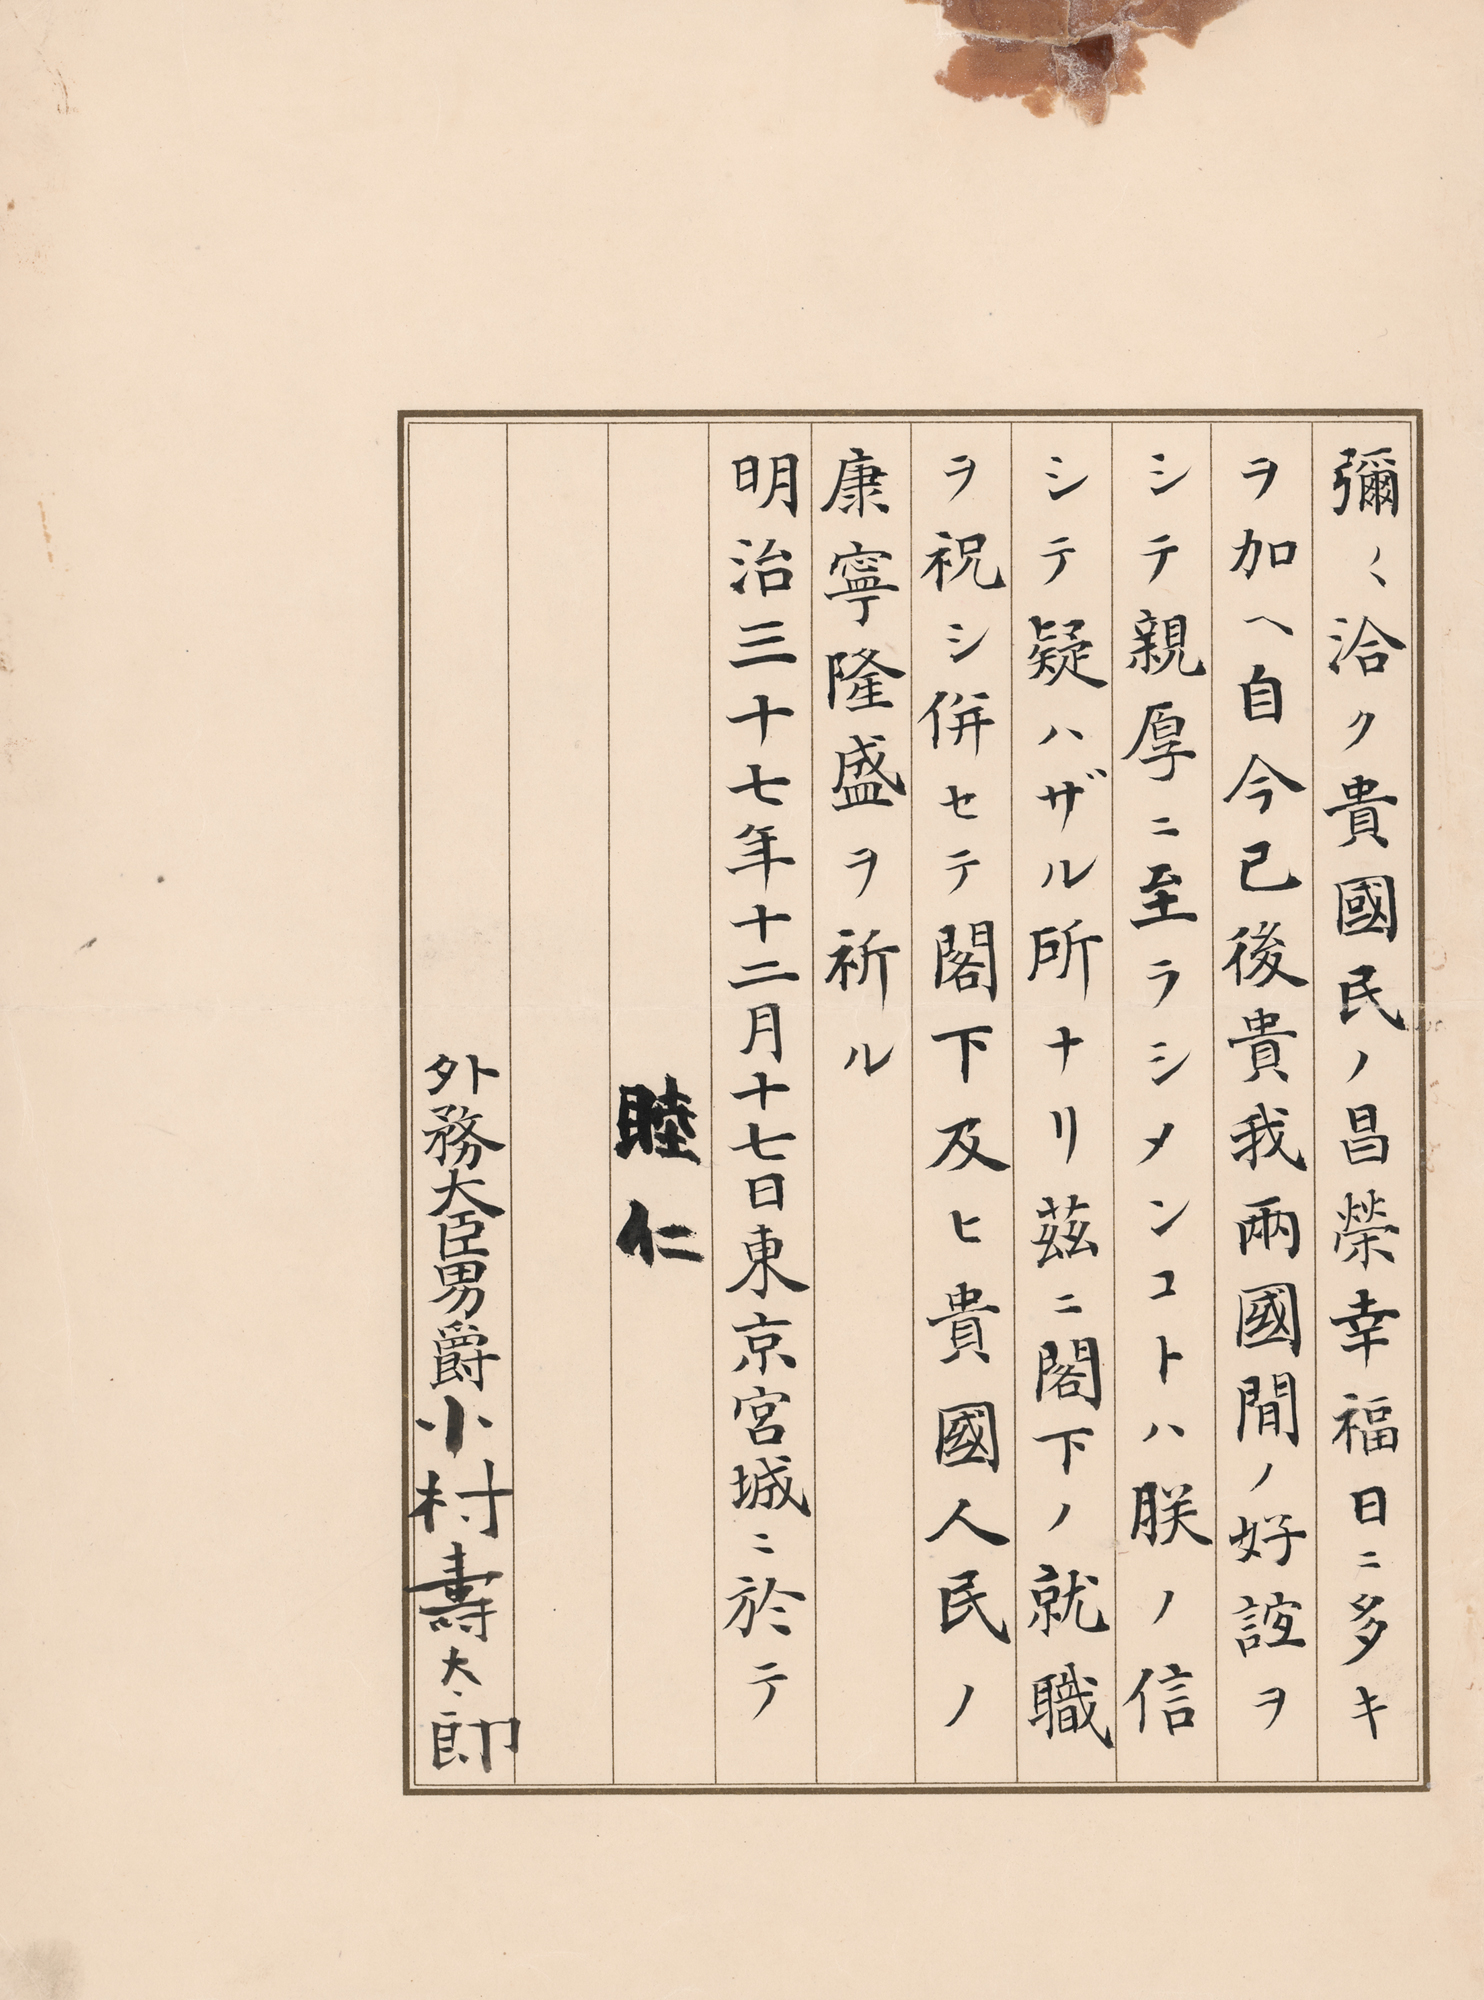 彌〻洽ク貴國民ノ昌榮幸福日ニ多キ
ヲ加ヘ自今已後貴我兩國間ノ好誼ヲ
シテ親厚ニ至ラシメンコトハ朕ノ信
シテ疑ハザル所ナリ茲ニ閣下ノ就職
ヲ祝シ併セテ閣下及ヒ貴國人民ノ
康寧隆盛ヲ祈ル
明治三十七年十二月十七日東京宮城ニ於テ
睦仁
外務大臣男爵小村壽太郎